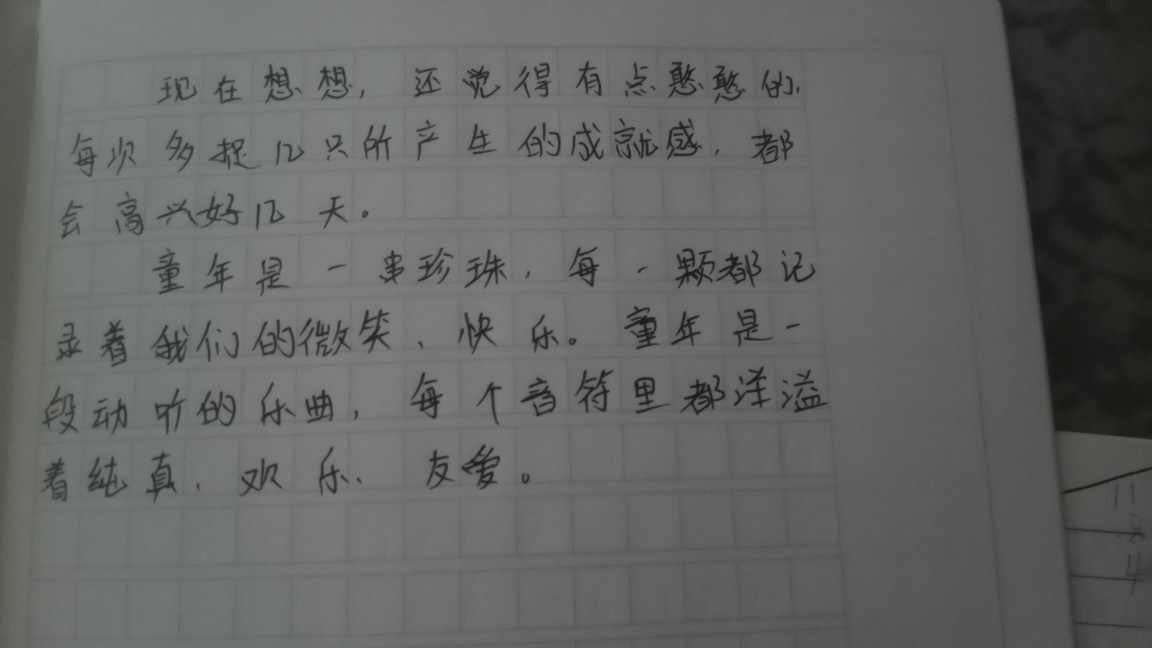 现在想想，还觉得有点憨憨的，
每次多捉几只所产生的成就感，都
会高兴好几天。
童年是一串珍珠，每一颗都记
录着我们的微笑、快乐。童年是一
段动听的乐曲，每个音符里都洋溢
着纯真、欢乐、友爱。